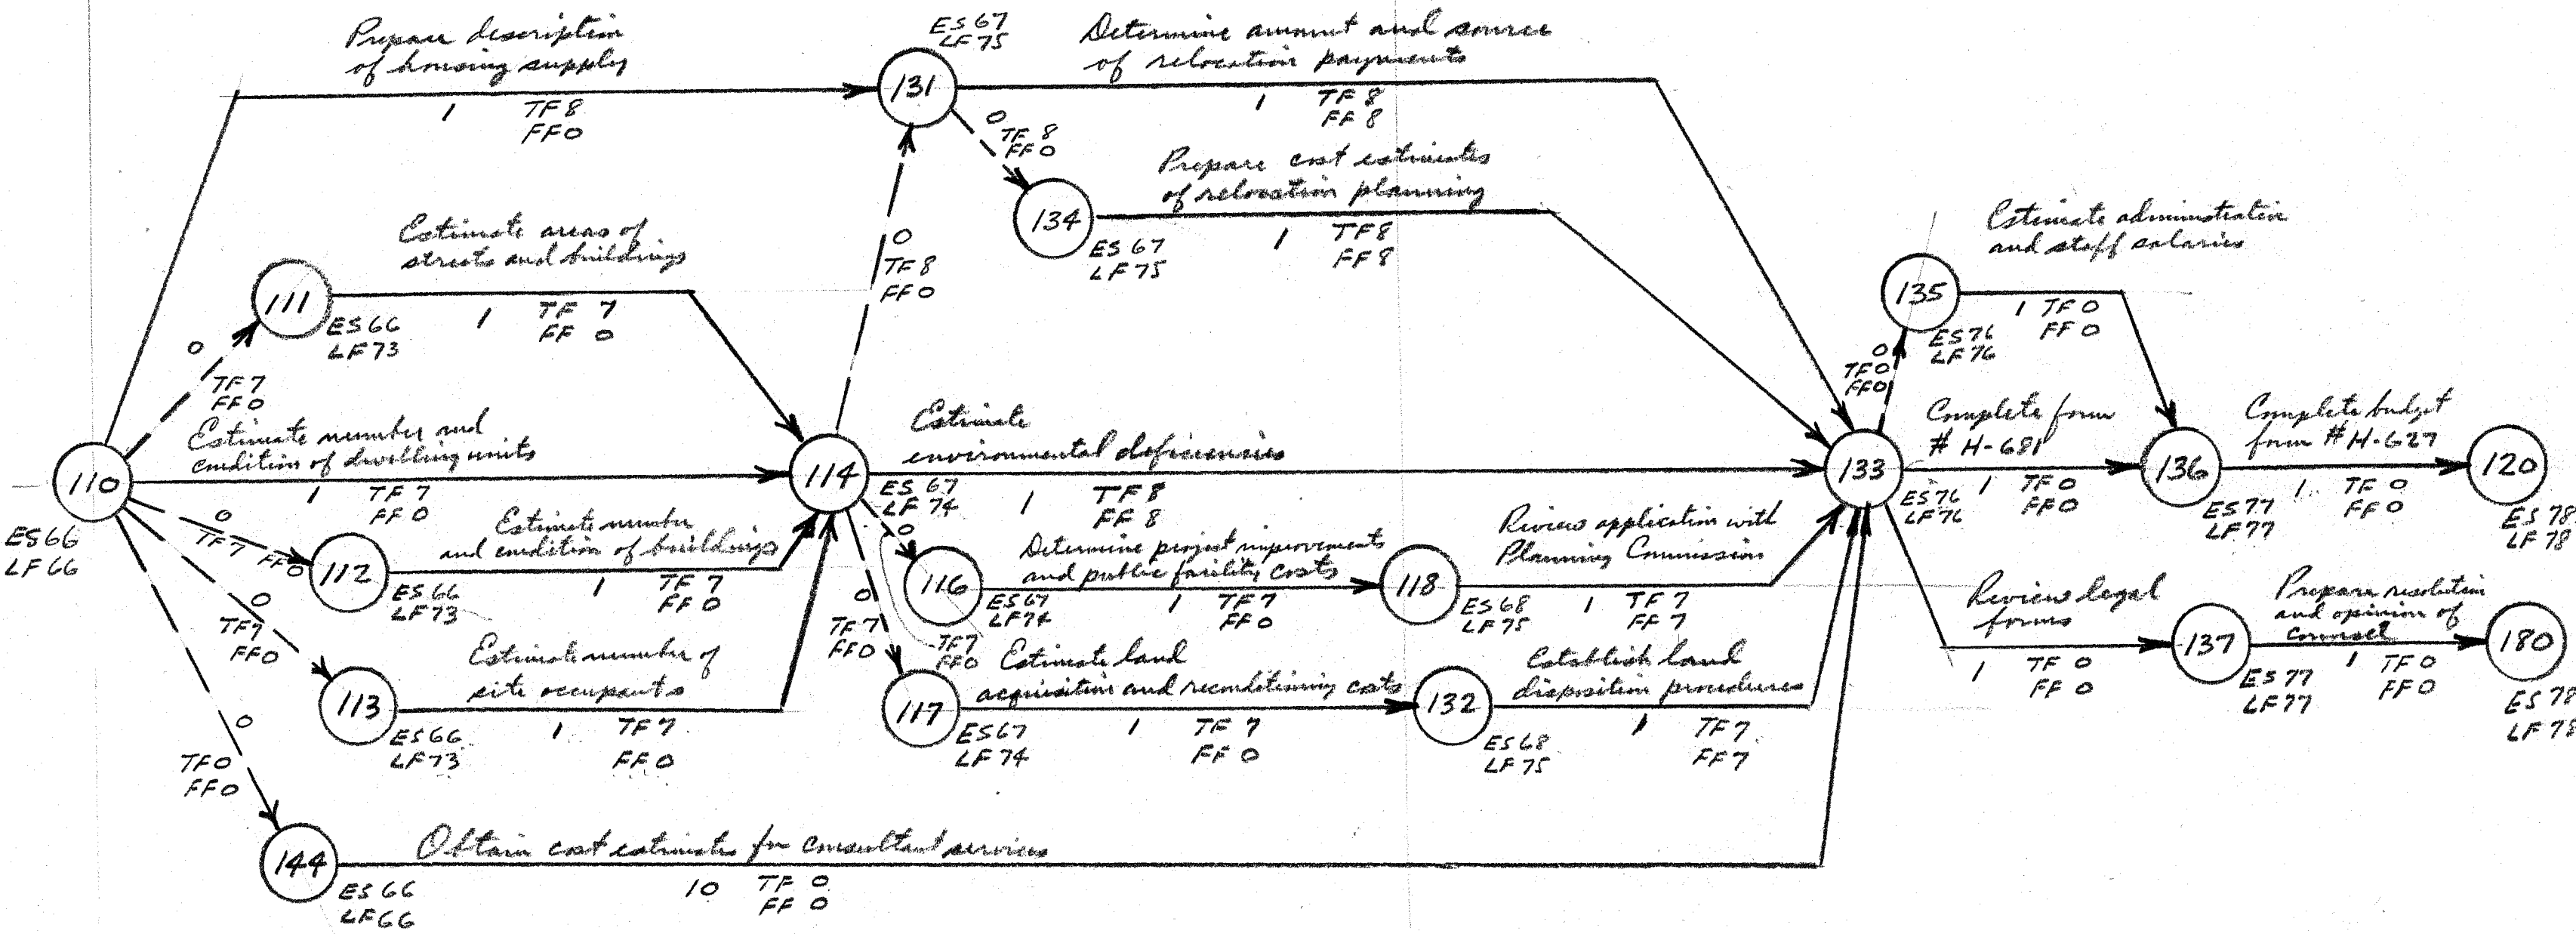 Prepare description
of housing supply
1 TF 8
FF 0
ES 67
LF 75
131
Determine amount and source
of relocation payments
1 TF 8
FF 8
0
TF 8
FF 0
134
ES 67
LF 75
Prepare cost estimates
of relocation planning
1 TF 8
FF 8
0
TF 8
FF 0
111
ES 66
LF 73
Estimate areas of
streets and buildings
1 TF 7
FF 0
0
TF 7
FF 0
110
ES 66
LF 66
Estimate number and
condition of dwelling units
1 TF 7
FF 0
0
TF 7 FF 0
112
ES 66
LF 73
Estimate number
and condition of buildings
1 TF 7
FF 0
0
TF 7
FF 0
113
ES 66
LF 73
Estimate number of
site occupants
1 TF 7
FF 0
0
TF 0
FF 0
144
ES 66
LF 66
Obtain cost estimates for consultant services
10 TF 0
FF 0
114
ES 67
LF 74
Estimate
environmental deficiencies
1 TF 8
FF 8
0
TF 7
FF 0
116
ES 67
LF 74
Determine project improvements
and public facility costs
1 TF 7
FF 0
118
ES 68
LF 75
Review application with
Planning Commission
1 TF 7
FF 7
0
TF 7
FF 0
117
ES 67
LF 74
Estimate land
acquisition and reconditioning costs
1 TF 7
FF 0
132
ES 68
LF 75
Establish land
disposition procedures
1 TF 7
FF 7
133
ES 76
LF 76
0
TF 0
FF 0
135
ES 76
LF 76
Estimate administrative
and staff salaries
1 TF 0
FF 0
Complete form
# H-681
1 TF 0
FF 0
136
ES 77
LF 77
Complete budget
form # H-627
1 TF 0
FF 0
120
ES 78
LF 78
Review legal
forms
1 TF 0
FF 0
137
ES 77
LF 77
Prepare resolution
and opinion of
counsel
1 TF 0
FF 0
180
ES 78
LF 78